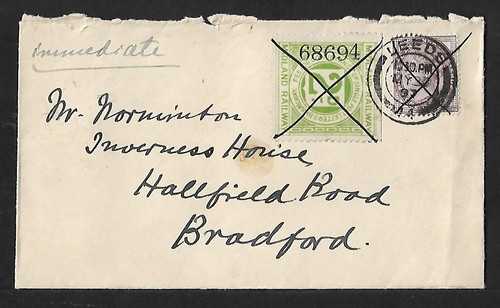 immediate
68694
MIDLAND RAILWAY
2
LEEDS
97
Mr. Norminton
Inverness House,
Hallfield Road
Bradford.